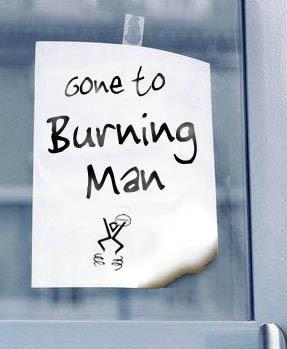 Gone to
Burning
Man